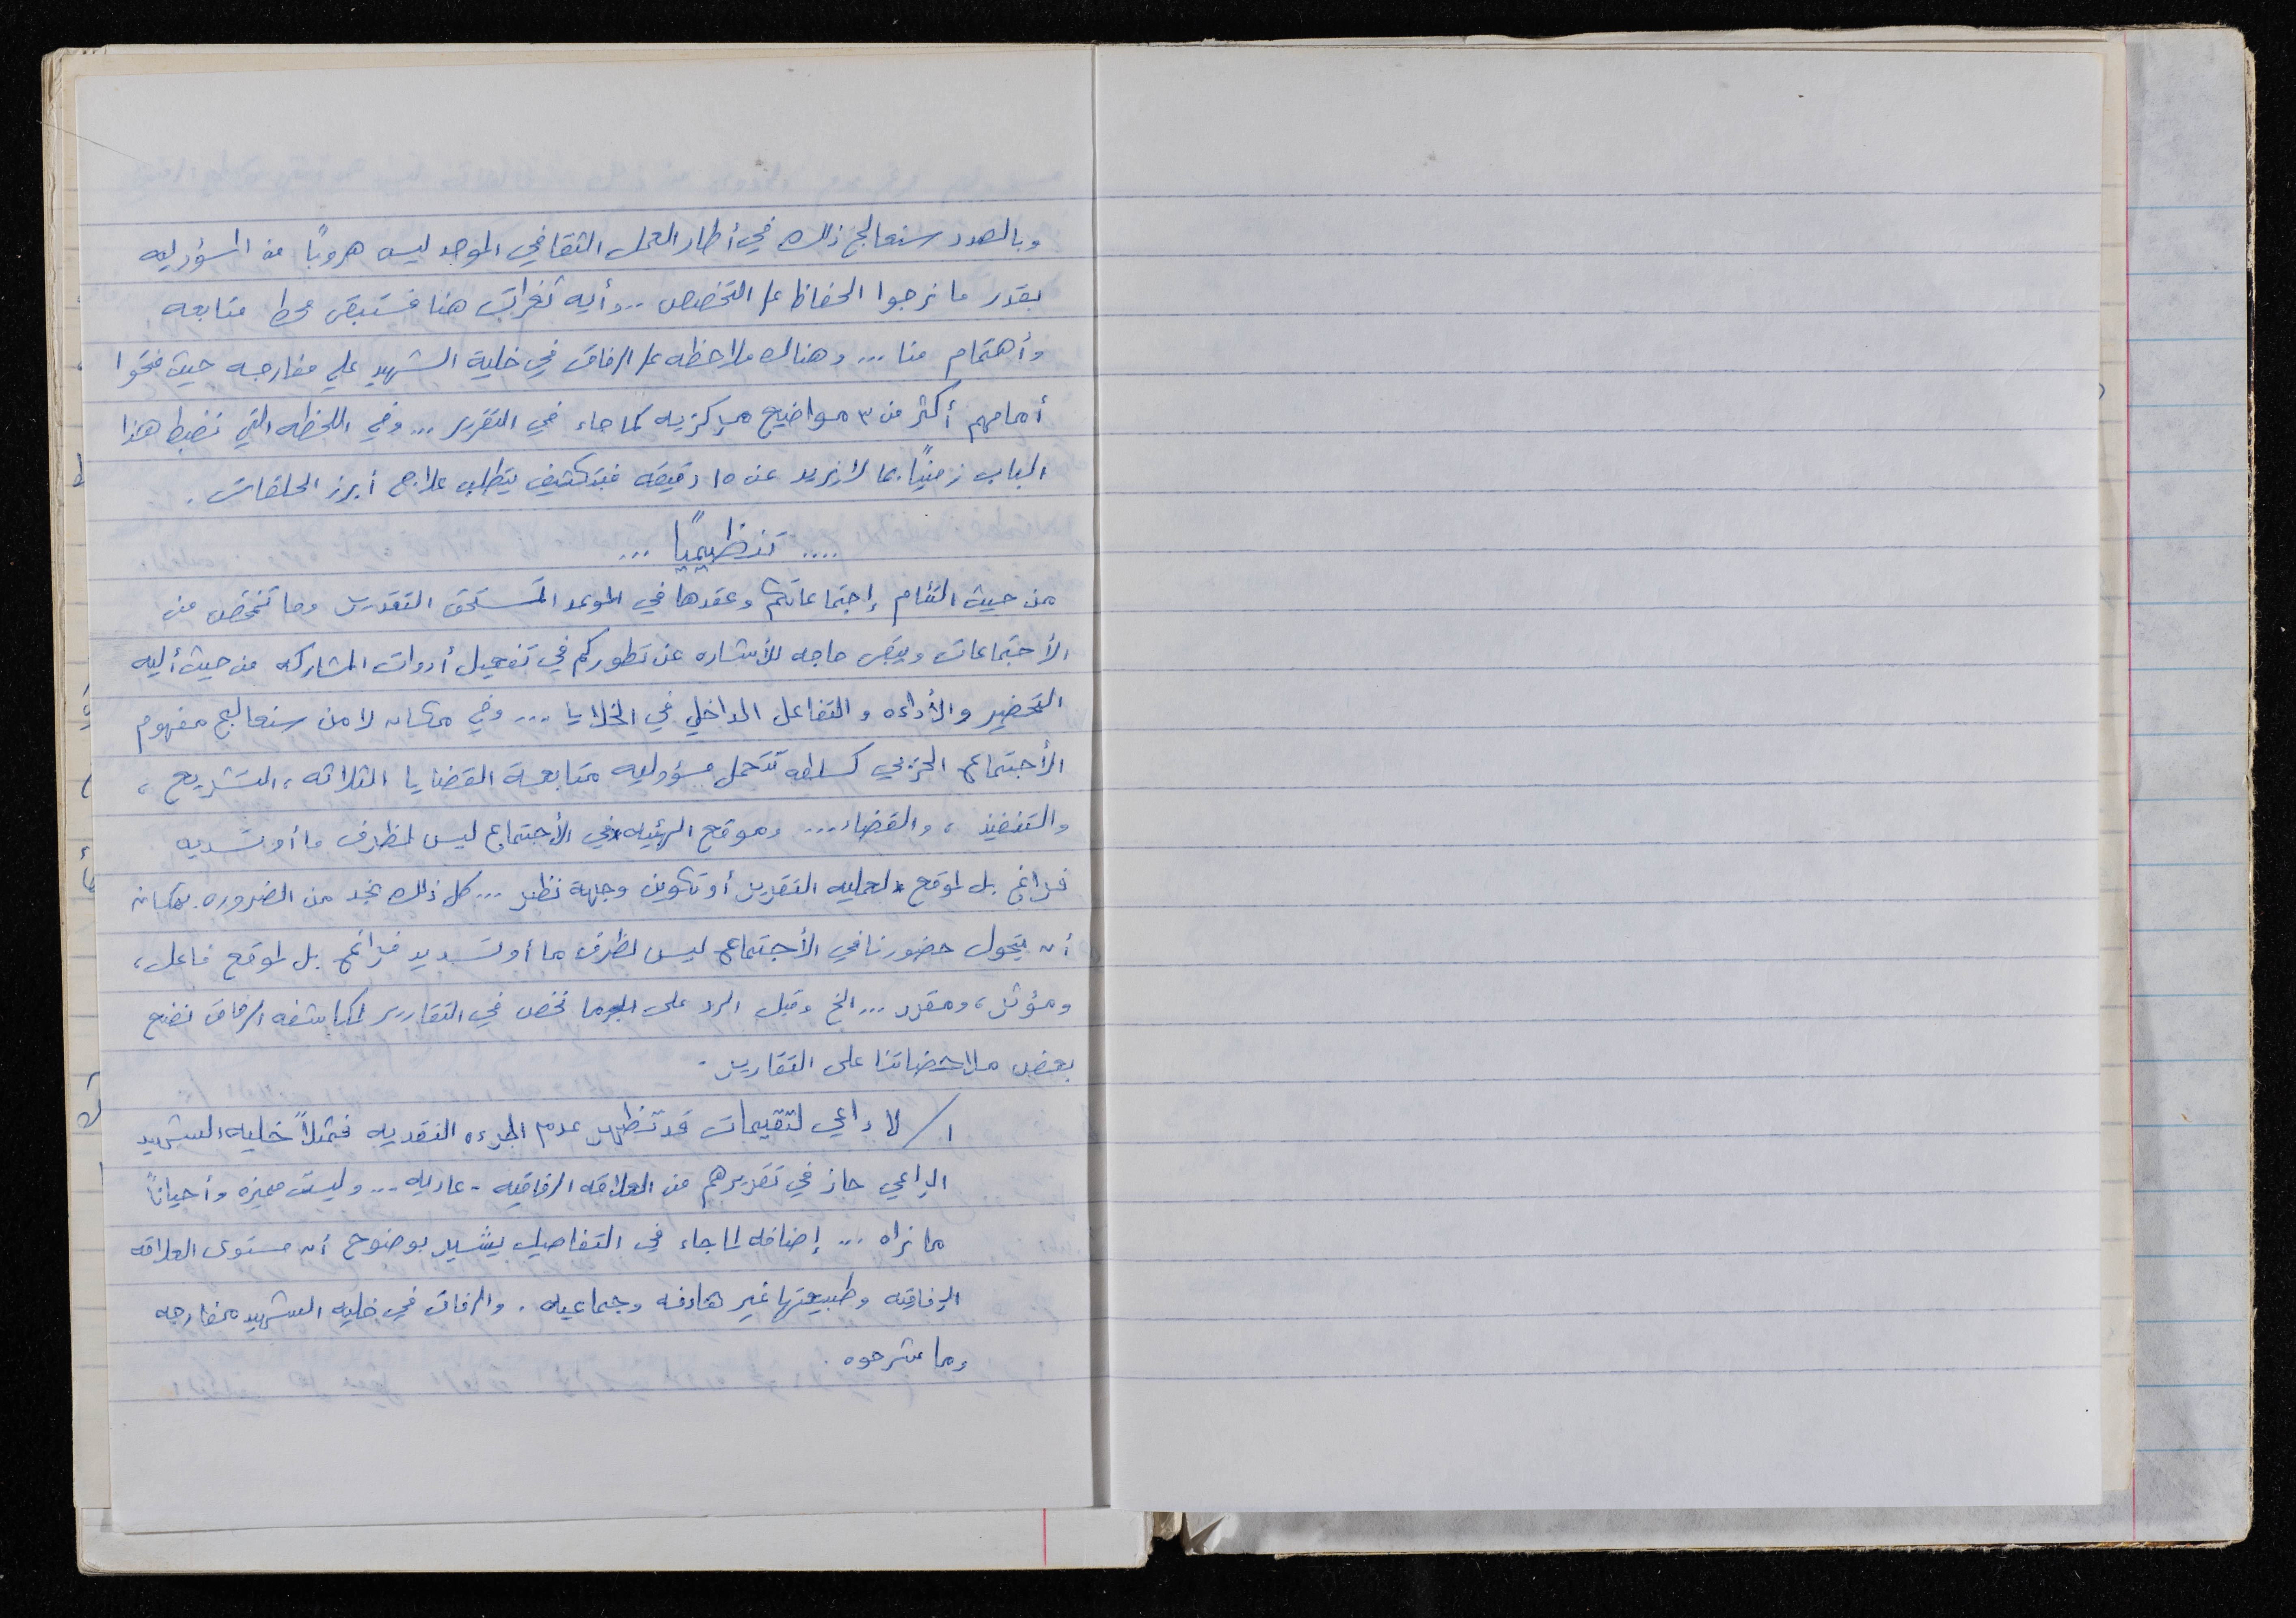 وبالصدد سنعالج ذلك في أطار العمل الثقافي الموحد ليس هروبًا من المسؤوليه
بقدر ما نرجوا الحفاظ على التخصص .. وأيه ثغرات هنا فستبقى محط متابعه
وأهتمام منا ... وهناك ملاحظه على الرفاق في خلية الشهيد علي مفارجه حيث فتحوا
أمامهم أكثر من ٣ مواضيع مركزيه كما جاء في التقرير ... وفي اللحظه التي نضبط هذا
الباب زمنيًا بما لا يزيد عن ١٥ دقيقه فبتكثيف يتطلب علاج أبرز الحلقات .
.... تنظيميًا ...
من حيث التئام إجتماعاتكم وعقدها في الموعد المستحق التقدير وما تمخض من
الأجتماعات ويبقى حاجه للأشاره عن تطوركم في تفعيل أدوات المشاركه من حيث أليه
التحضير والأداء والتفاعل الداخلي في الخلايا ... وفي مكان لا من سنعالج مفهوم
الأجتماع الحزبي كسلطه تتحمل مسؤوليه متابعة القضايا الثلاثه ، التشريع ،
والتنفيذ ، والقضاء ... وموقع الهيئيه في الأجتماع ليس لظرف ما أو تسديه
فراغ بل لموقع لعمليه التقرير أو تكوين وجهة نظر ... كل ذلك نجد من الضروره بمكان
أن يتحول حضورنا في الأجتماع ليس لظرف ما أو تسديد فراغ بل لموقع فاعل ،
ومؤثر ، ومقرر ... الخ وقبل الرد على ما نخص في التقارير لمكاشفه الرفاق نضع
بعض ملاحضاتنا على التقارير .
١/ لا داعي لتقيمات قد تظهر عدم الجرءه النقديه فمثلاً خليه الشهيد
الراعي جاز في تقريرهم من العلاقه الرفاقيه - عاديه ... وليست مميزه وأحيانًا
ما نراه ... إضافه لما جاء في التفاصيل يشير بوضوح أن مستوى العلاقه
الرفاقيه وطبيعتها غير هادفه وجماعيه . والرفاق في خليه الشهيد مفارجه
وما شرحوه .